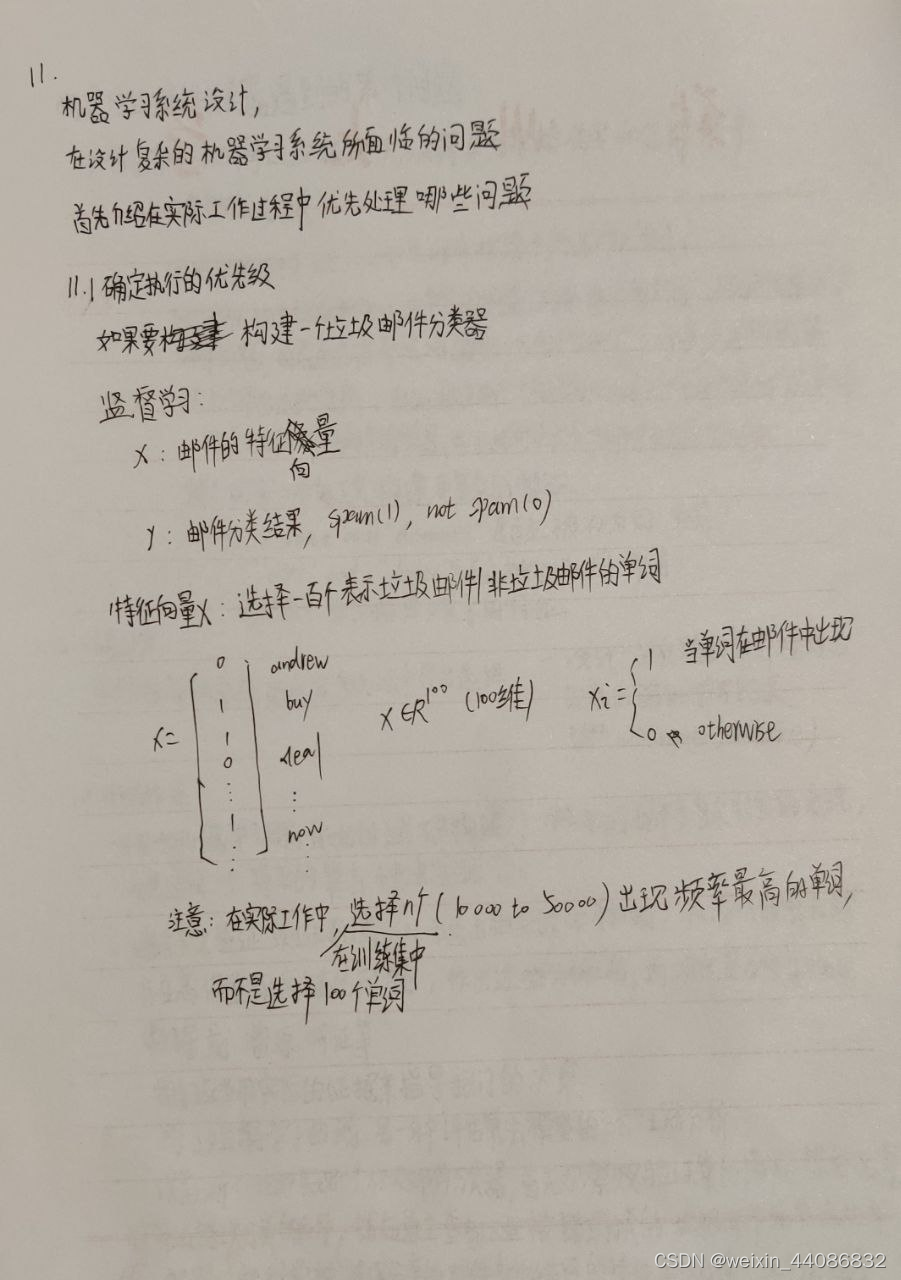 11.
机器学习系统设计,
在设计复杂的机器学习系统所面临的问题
首先介绍在实际工作过程中优先处理哪些问题
11.1 确定执行的优先级
如果要 构建一个垃圾邮件分类器
监督学习:
X: 邮件的特征向量
y: 邮件分类结果, spam(1), not spam(0)
特征向量X: 选择一百个表示垃圾邮件/非垃圾邮件的单词
X = [0 1 1 0 ⋮ 1 ⋮] andrew buy deal ⋮ now ⋮
X∈R¹⁰⁰ (100维)
xi = { 1 当单词在邮件中出现
0 otherwise
注意: 在实际工作中, 在训练集中选择n个(10000 to 50000)出现频率最高的单词,
而不是选择100个单词
CSDN @weixin_44086832